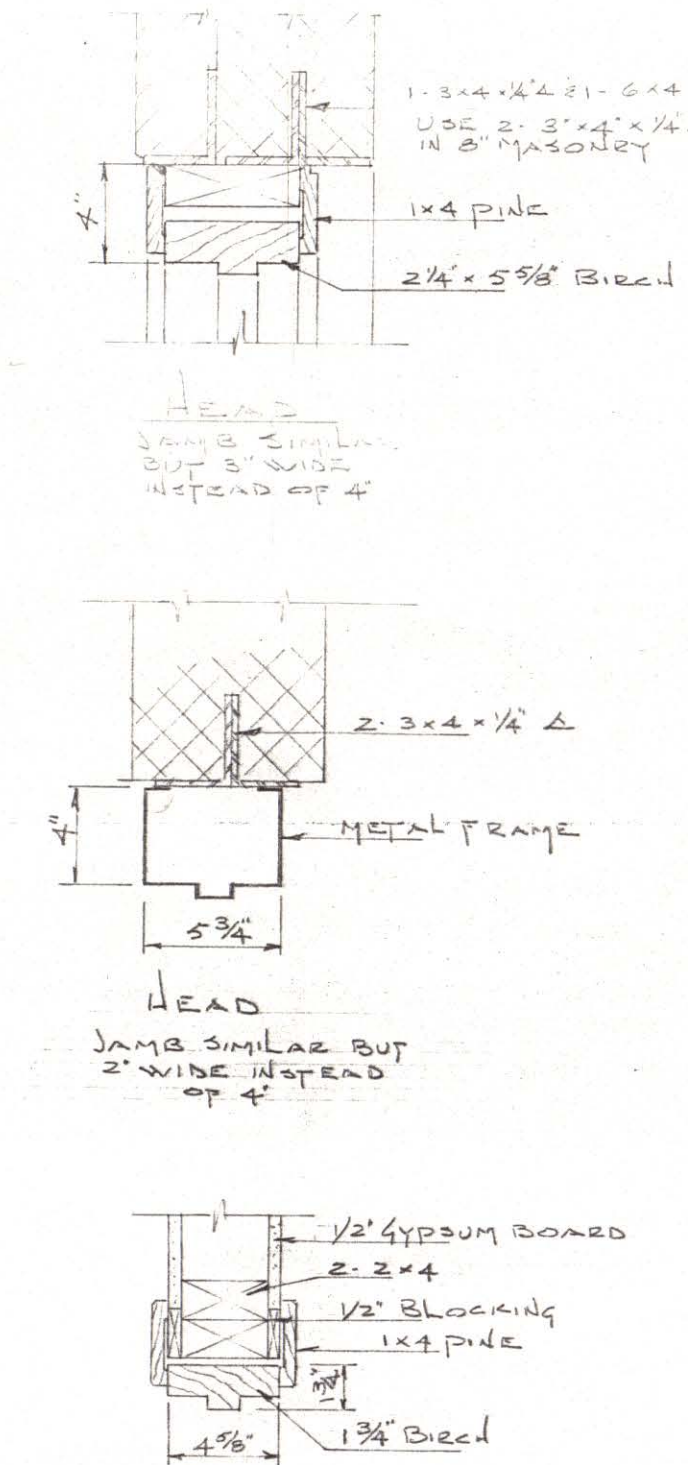 1 - 3 x 4 x 1/4" ∠ & 1 - 6 x 4
USE 2 - 3" x 4" x 1/4"
IN 8" MASONRY
4"
1 x 4 PINE
2 1/4" x 5 5/8" BIRCH
HEAD
JAMB SIMILAR
BUT 3" WIDE
INSTEAD OF 4"
2 - 3 x 4 x 1/4" ∠
4"
METAL FRAME
5 3/4"
HEAD
JAMB SIMILAR BUT
2" WIDE INSTEAD
OF 4"
1/2" GYPSUM BOARD
2 - 2 x 4
1/2" BLOCKING
1 x 4 PINE
1 3/4"
4 5/8"
1 3/4" BIRCH